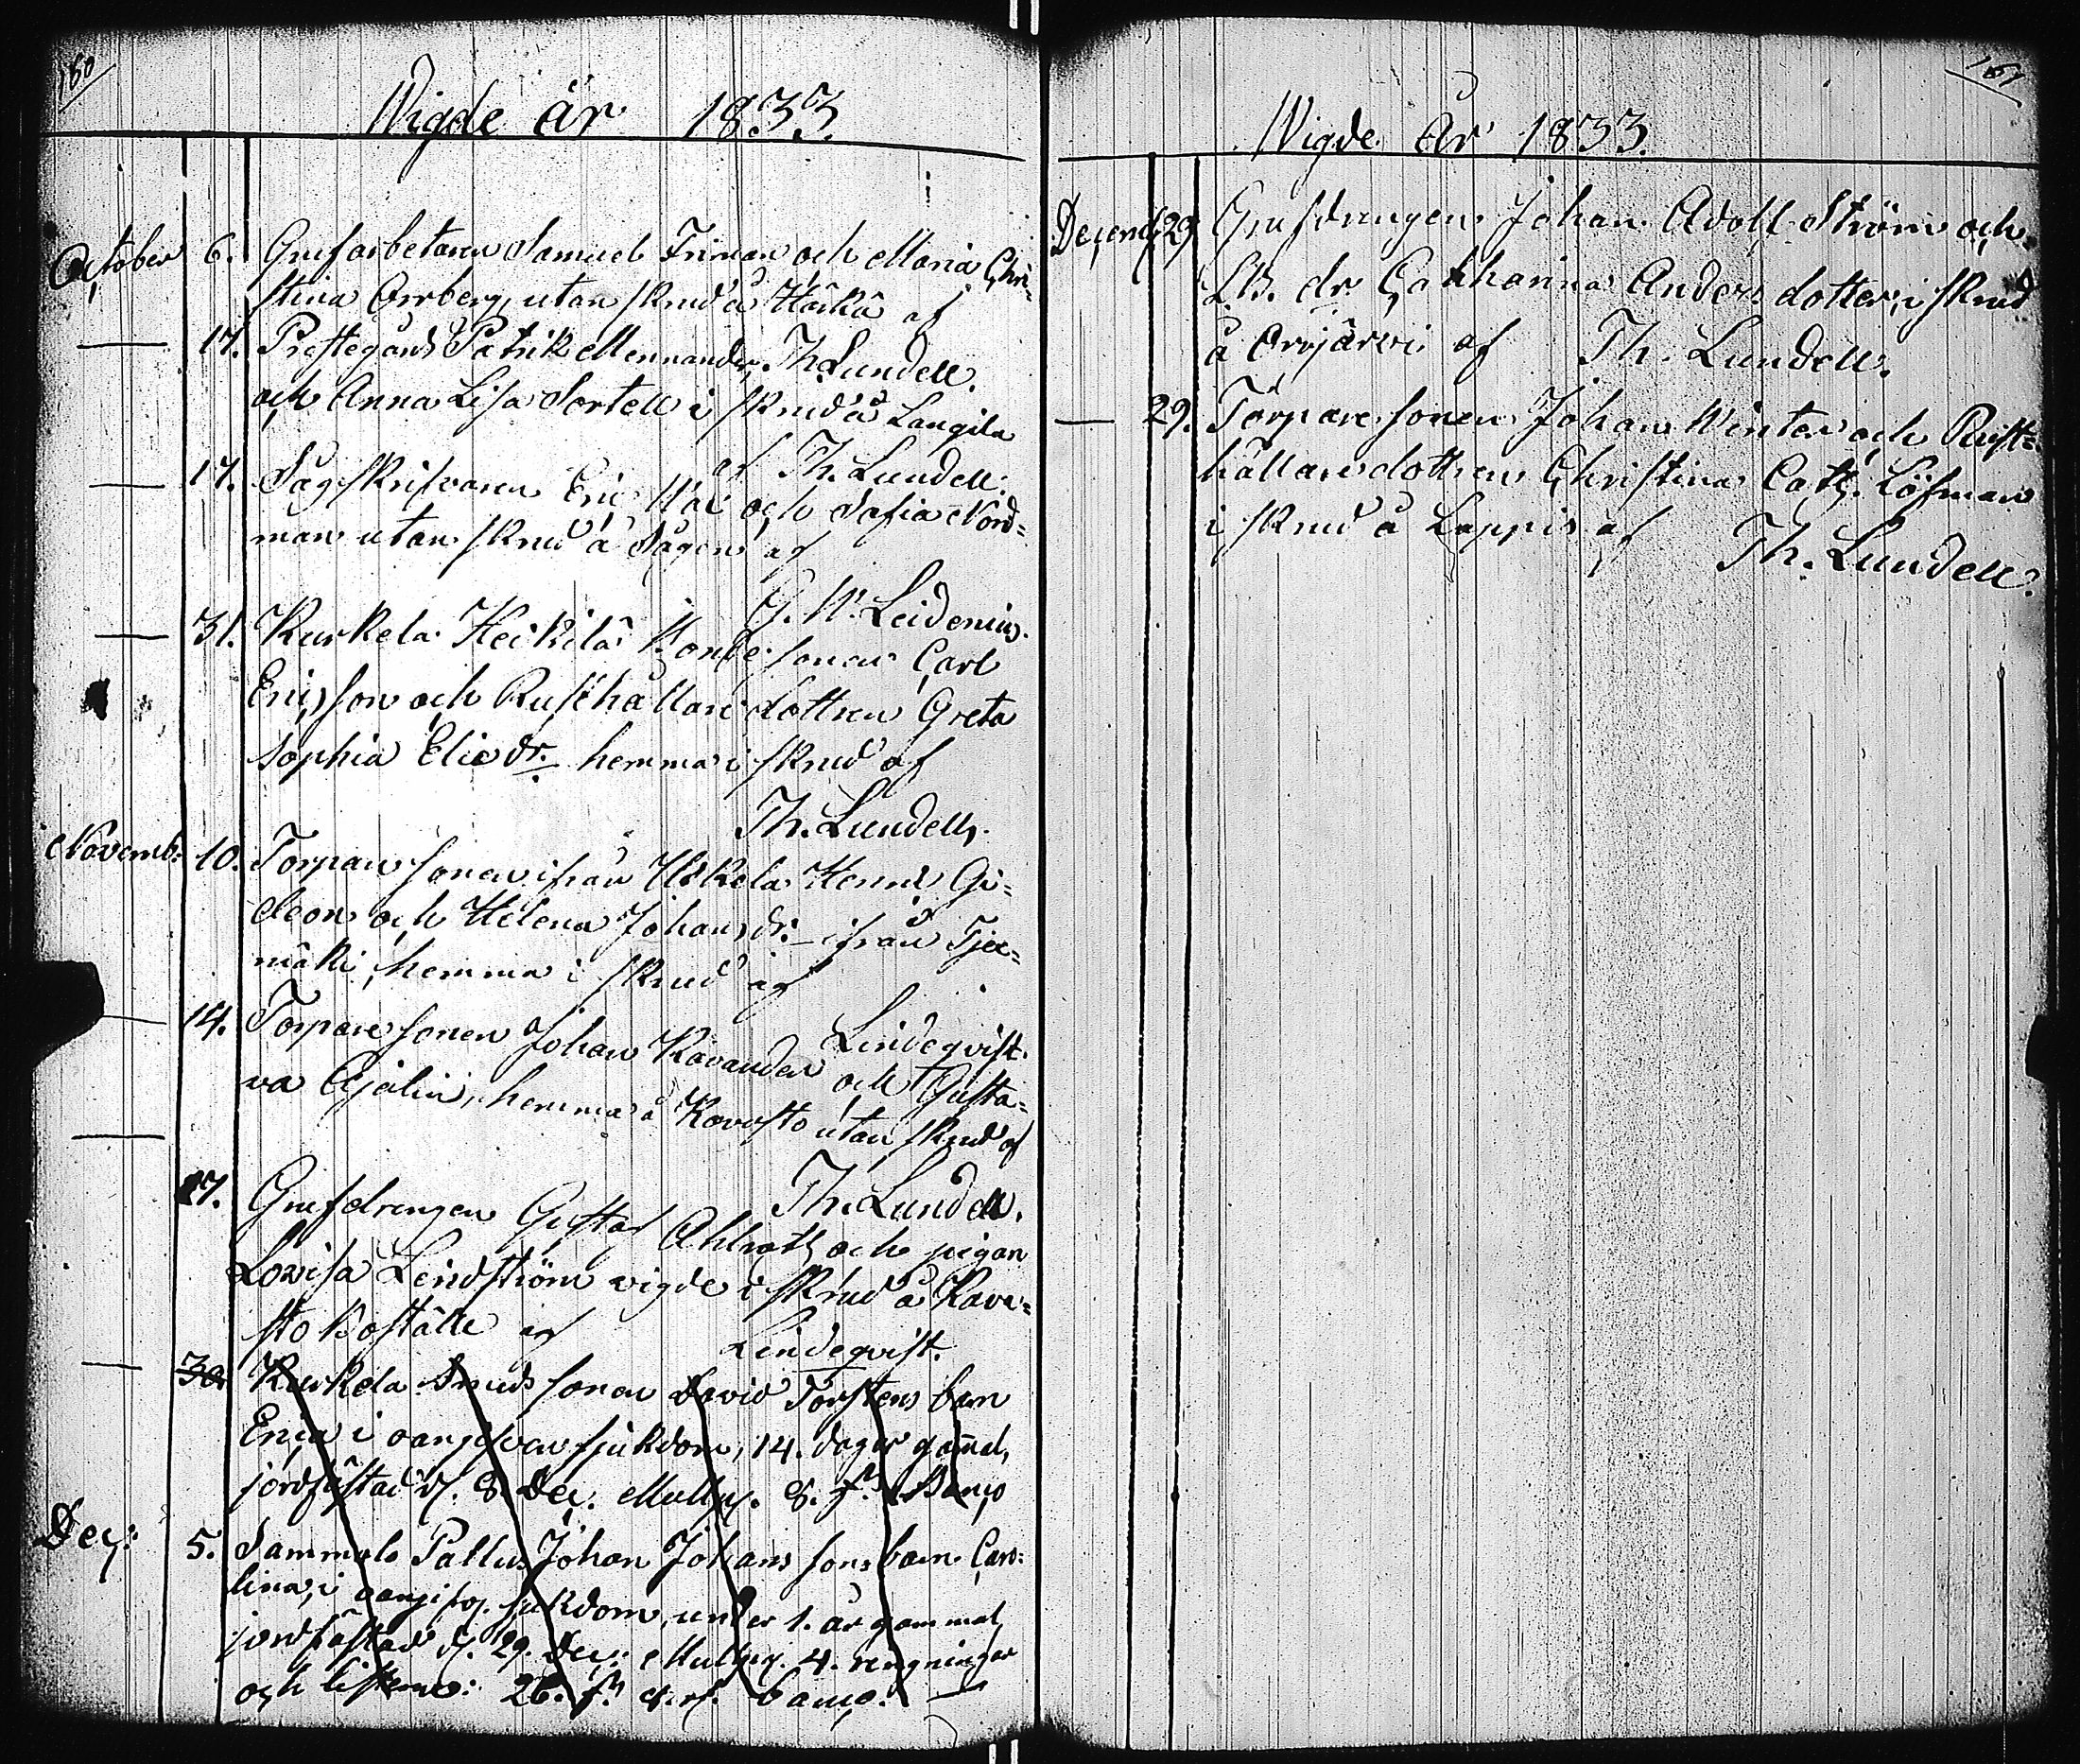 160
Wigde år 1833.
October 6. Grufarbetaren Samuel Friman och Maria Chri-
stina Orrberg, utan skrud å Härkä af
— 17. Prestegårds Patrik Mennander, Th. Lundell.
och Anna Lisa Sortell i skrud å Langila
af Th. Lundell.
— 17. Sågskrifvaren Eric och Sofia Nord-
man utan skrud å Sågen af
G. W. Leidenius.
— 31. Kurkela Heikilä Bondesonen Carl
Ericsson och Rusthållaredottren Greta
Sophia Eliedr. hemma i skrud af
Th. Lundell.
Novemb: 10. Torparesonen ifrån Gi-
deon och Helena Johansdr. ifrån
mäki, hemma i skrud af
Lindeqvist.
— 14. Torparesonen Johan Kavander och Gusta-
va hemma å Kavasto utan skrud af
Th. Lundell.
— 17. Grufdrengen Gustaf Ahlroth och pigan
Lovisa Lindström vigde i skrud å Kava-
sto Boställe af Lindeqvist.
— 30. Kurkela Smeds sonen David Torstens barn
Erica i oangifven sjukdom, 14. dagar gammal,
jordfästad d. 8. Dec. 8. fn. Banco
Dec: 5. Sammalo Pallus Johan Johans sons barn Caro-
lina, i oangifv. sjukdom, under 1. år gammal
jordfästad d. 29. Dec: 4. rengningar
och 26. fn banco. —
161
Wigde År 1833.
Decemb. 29. Grufdrengen Johan Adolf Ström och
dr. Catharina Andersdotter, i skrud
å Orrjärvi af Th. Lundell.
— 29. Torparesonen Johan Winter och Rust-
hållaredottren Christina Cath. Löfman
i skrud å Lappis af Th. Lundell.